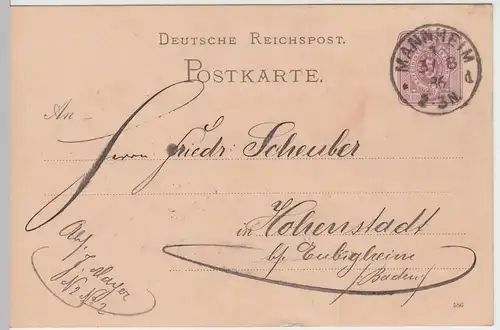 DEUTSCHE REICHSPOST.
POSTKARTE.
MANNHEIM
31 8
86
2-3N
d
An
Herrn Friedr. Scheuber
in Hohenstadt
b/. Eubigheim
(Baden)
Abs. J. Mayer
586